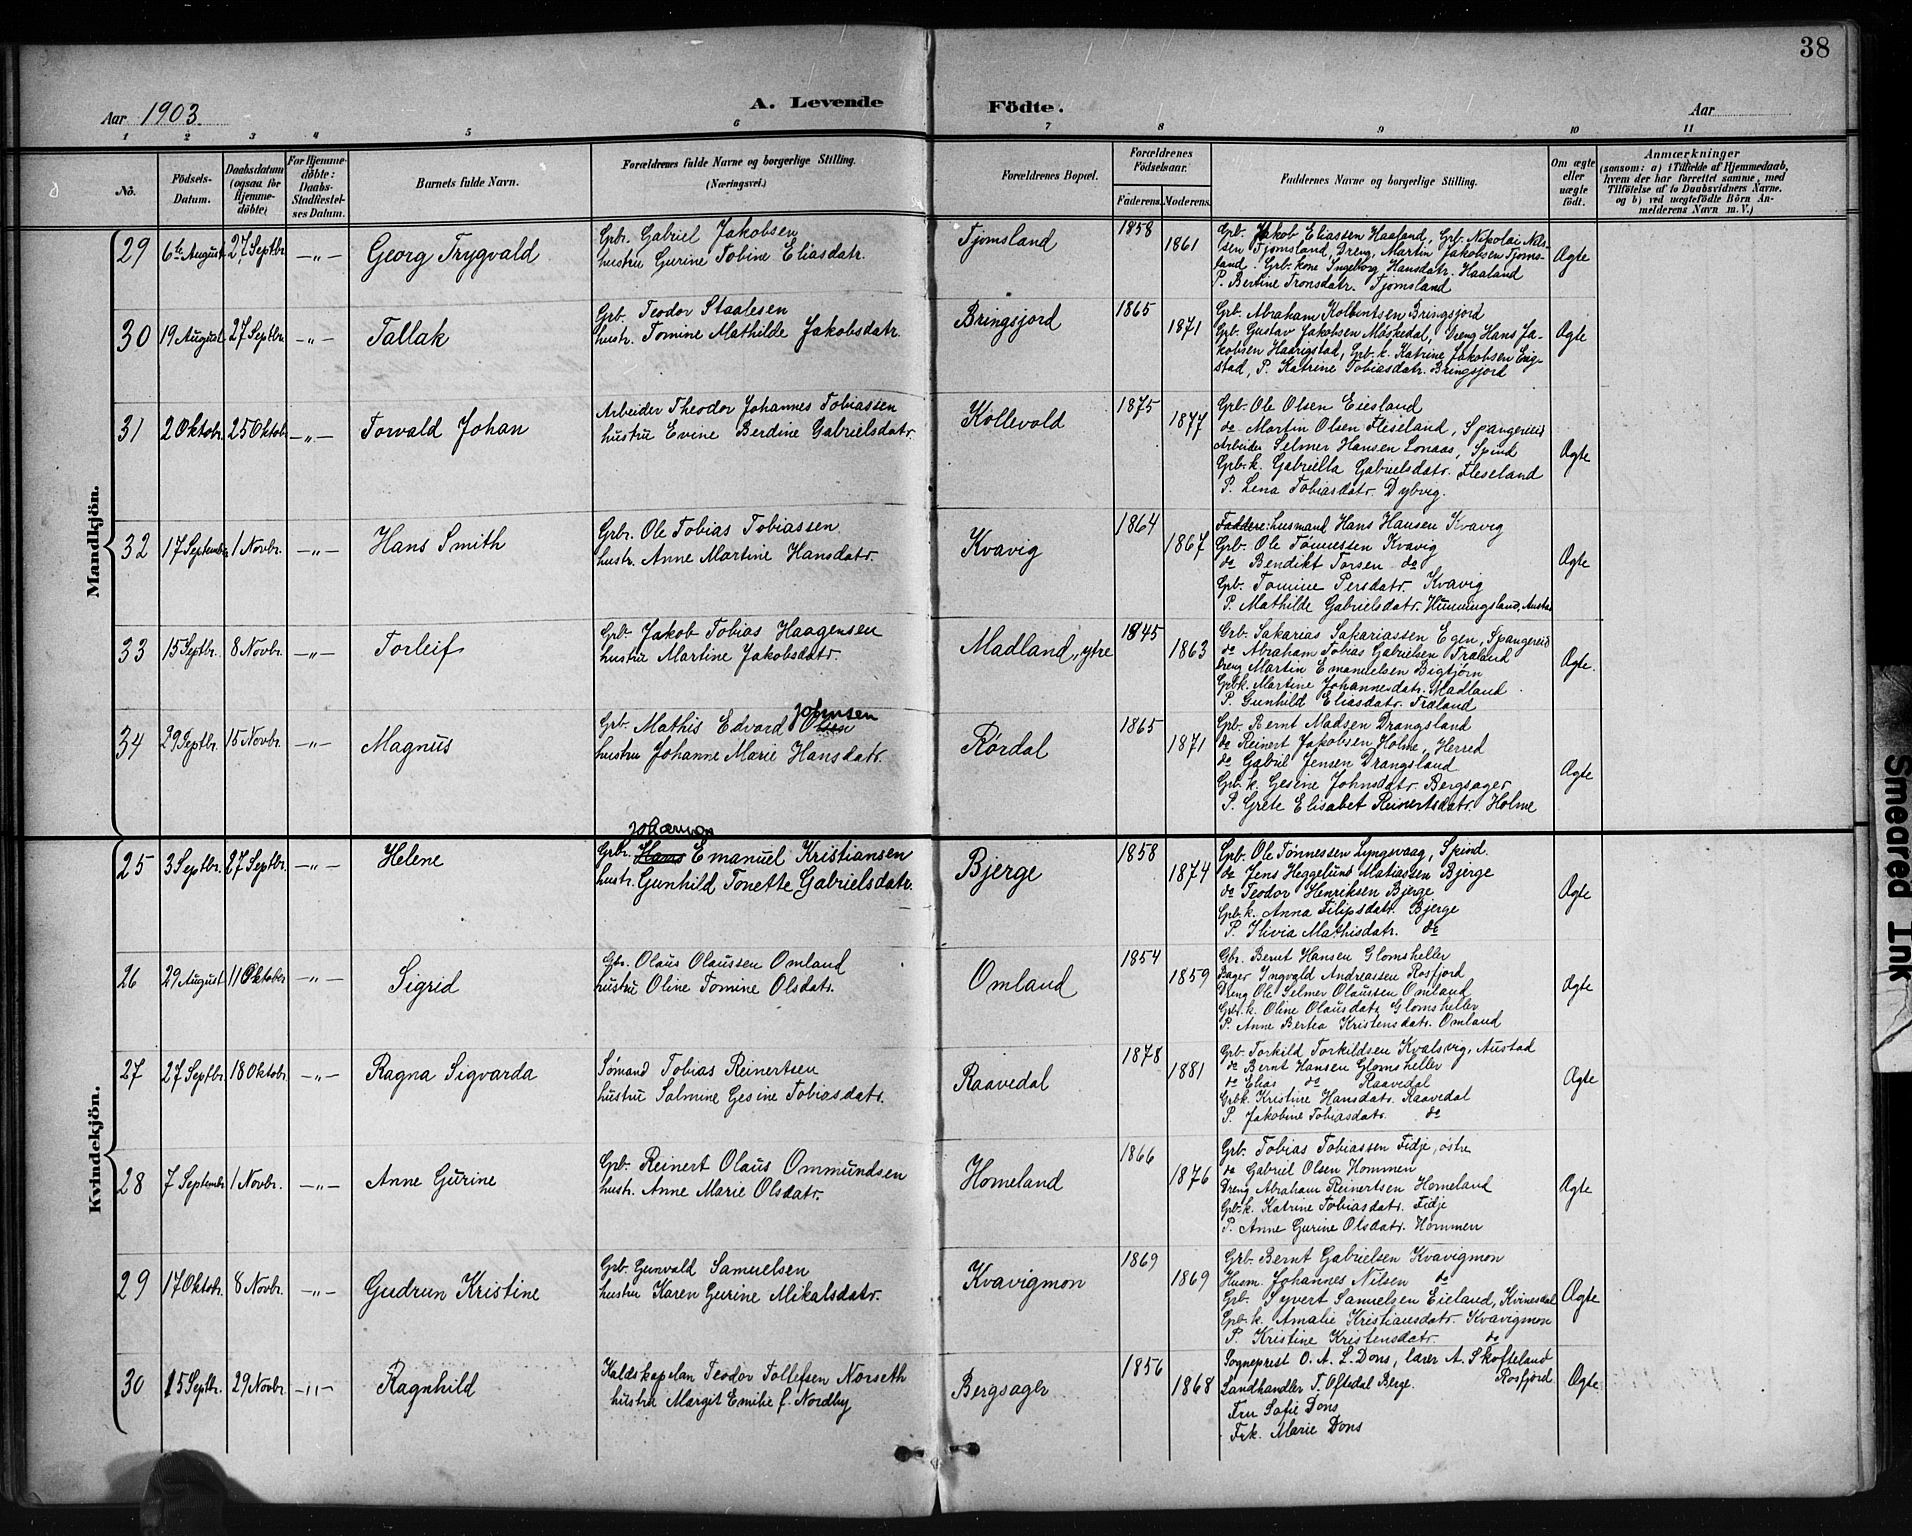 38
Aar 1903.
A. Levende
Födte.
Aar
1 2 3 4 5 6 7 8 9 10 11
No.
Födsels-
Datum.
Daabsdatum
(ogsaa for
Hjemme-
döbte)
For Hjemme-
döbte:
Daabs-
Stadfæstel-
ses Datum.
Barnets fulde Navn.
Forældrenes fulde Navne og borgerlige Stilling.
(Næringsvei.)
Forældrenes Bopæl.
Forældrenes
Födselsaar.
Faderens. Moderens.
Faddernes Navne og borgerlige Stilling.
Om ægte
eller
uægte
födt.
Anmærkninger
(saasom: a) i Tilfælde af Hjemmedaab,
hvem der har forrettet samme, med
Tilföielse af to Daabsvidners Navne.
og b) ved uægtefödte Börn An-
melderens Navn m. V.)
Mandkjön.
29 6te August 27 Septbr. —„— Georg Trygvald
Gbr. Gabriel Jakobsen
hustru Gurine Tobine Eliasdatr.
Tjomsland
1858
1861
Grb. Jakob Eliassen Haaland, Grb. Nikolai Nils-
sen Tjomsland, Dreng Martin Jakobsen Tjoms-
land. Grb. kone Ingeborg Hansdatr. Haaland
P. Bertine Tronsdatr. Tjomsland
Ægte
30 19 August 27 Septbr. —„— Tallak
Grb. Teodor Staalesen
hustr. Tomine Mathilde Jakobsdatr.
Bringsjord
1865
1871
Grb. Abraham Kolbentsen Bringsjord
Grb. Gustav Jakobsen Møskedal, Dreng Hans Ja-
kobsen Haarigstad, Grb. k. Katrine Jakobsen Eig-
stad, P. Katrine Tobiasdatr. Bringsjord
Ægte
31 2 Oktobr. 25 Oktob. —„— Torvald Johan
Arbeider Theodor Johannes Tobiassen
hustru Evine Berdine Gabrielsdatr.
Kollevold
1875
1877
Grb. Ole Olsen Eiesland
do Martin Olsen Fleseland, Spangereid
Arbeider Selmer Hansen Lonaas, Spind
Grb. k. Gabriella Gabrielsdatr. Fleseland
P. Lena Tobiasdatr. Dybvig.
Ægte
32 17 Septembr. 1 Novbr. —„— Hans Smith
Grbr. Ole Tobias Tobiassen
hustr. Anne Martine Hansdatr.
Kvavig
1864
1867
Faddere: husmand Hans Hansen Kvavig
Grb. Ole Tønnessen Kvavig
do Bendikt Torsen do
Grb. Tomine Persdatr. Kvavig
P. Mathilde Gabrielsdatr. Hummingsland, Austad
Ægte
33 15 Septbr. 8 Novbr. —„— Torleif
Grb. Jakob Tobias Haagensen
hustru Martine Jakobsdatr.
Madland „ytre
1845
1863
Grb. Sakarias Sakariassen Egen, Spangereid
do Abraham Tobias Gabrielsen Fræland
Dreng Martin Emanuelsen Bigtjörn
Grb.k. Martine Johannesdatr. Madland
P. Gunhild Eliasdatr. Fræland
Ægte.
34 29 Septbr. 15 Novbr. —„— Magnus
Johnsen
Grb. Mathis Edvard Olsen
hustru Johanne Marie Hansdatr.
Rørdal
1865
1871
Grb. Bernt Madsen Drangsland
do Reinert Jakobsen Holme, Herred
do Gabriel Jensen Drangsland
Grb. k. Gesine Johnsdatr. Bergsager
P. Grete Elisabet Reinertsdatr. Holme
Ægte
Kvindekjön.
25 3 Septbr. 27 Septbr. —„— Helene
Grbr. Hans Emanuel Kristiansen
hustr. Gunhild Tonette Gabrielsdatr.
Bjerge
1858
1874
Grb. Ole Tønnessen Lyngsvaag, Spind.
do Jens Heggelund Matiassen Bjerge
do Teodor Henriksen Bjerge
Grb. k. Anna Filipsdatr. Bjerge
P. Silvia Mathisdatr. do
Ægte
26 29 August 11 Oktober —„— Sigrid
Gbr. Olaus Olaussen Omland
hustru Oline Tomine Olsdatr.
Omland
1854
1859
Gbr. Bernt Hansen Glomsheller
Bager Yngvald Andreassen Rosfjord
Dreng Ole Selmer Olaussen Omland
Grb. k. Oline Olausdatr. Glomsheller
P. Anne Bertea Kristensdatr. Omland
Ægte
27 27 Septbr. 18 Oktobr. —„— Ragna Sigvarda
Sømand Tobias Reinertsen
hustru Salmine Gesine Tobiasdatr.
Raavedal
1878
1881
Grb. Torkild Torkildsen Kvalsvig, Austad
do Bernt Hansen Glomsheller
do Elias do Raavedal
Grb.k. Kristine Hansdatr. Raavedal
P. Jakobine Tobiasdatr. do
Ægte
28 7 Septembr. 1 Novbr. —„— Anne Gurine
Grb. Reinert Olaus Ommundsen
hustr. Anne Marie Olsdatr.
Homeland
1866
1876
Grb. Tobias Tobiassen Fidje, östre
do Gabriel Olsen Hommen
Dreng Abraham Reinertsen Homeland
Grb.k. Katrine Tobiasdatr. Fidje
P. Anne Gurine Olsdatr. Hommen
Ægte
29 17 Oktobr. 8 Novbr. —„— Gudrun Kristine
Grb. Gunvald Samuelsen
hustru Karen Gurine Mikalsdatr.
Kvavigmon
1869
1869
Grb. Bernt Gabrielsen Kvavigmon
Husm. Johannes Nilsen do
Grb. Syvert Samuelsen Eieland, Kvinesdal
Grb. k. Amalie Kristiansdatr. Kvavigmon
P. Kristine Kristensdatr do
Ægte
30 15 Septbr. 29 Novbr. —„— Ragnhild
Kaldskapelan Teodor Tollefsen Norseth
hustru Margit Emilie f. Nordby
Bergsager
1856
1868
Sogneprest O. A. L. Dons, lærer A. Skofteland
Rosfjord
Landhandler T. Oftedal Berge.
Fru Sofie Dons
Frk. Marie Dons
Ægte.
Smeared Ink